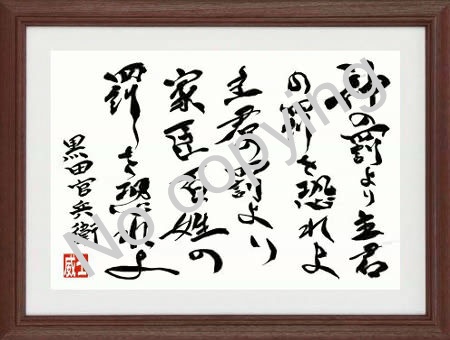 神の罰より主君
の罰を恐れよ
主君の罰より
家臣百姓の
罰を恐れよ
黒田官兵衛
No copying